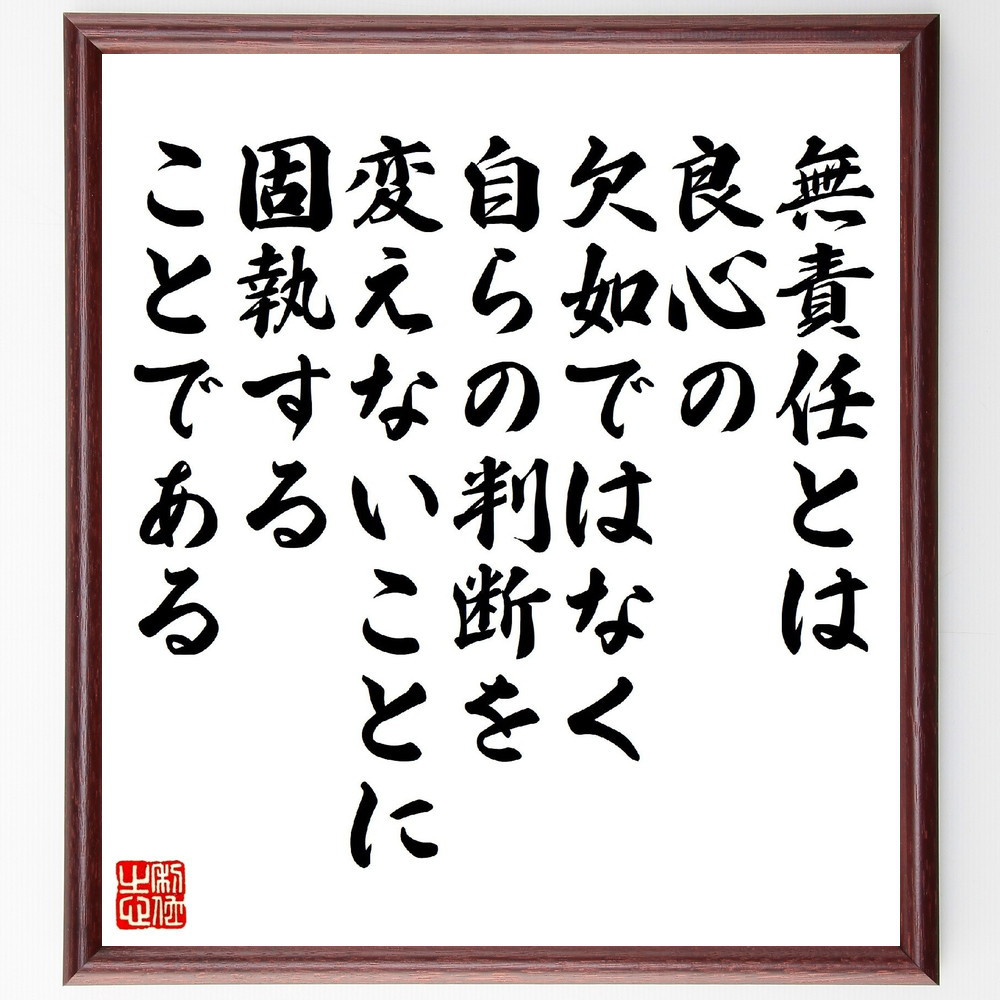 無責任とは
良心の
欠如ではなく
自らの判断を
変えないことに
固執する
ことである